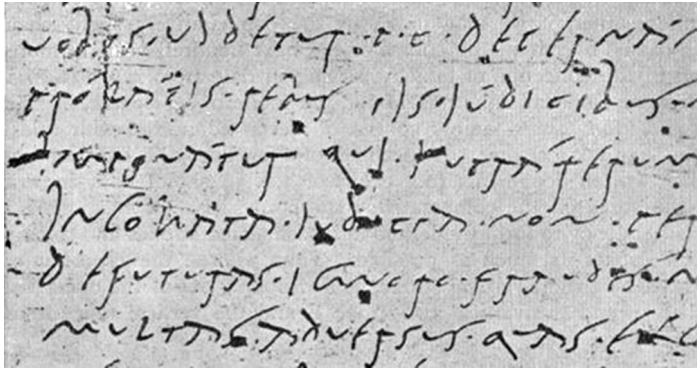 uobis · uidetur · p · c · decernati
prolatis · rebus iis · iudicibus ·
imponatur qui · intra rerum
incohata · iudicia · non · per
defuturas · ignoro · fraudes · m
multas · aduersus · quas · exc